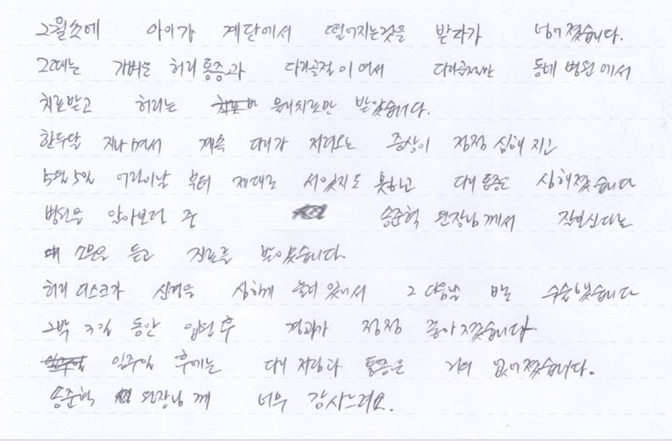 2월쯤에 아이가 계단에서 떨어지는것을 받다가 넘어졌습니다.
그때는 가벼운 허리통증과 다리골절이어서 다리골절만 동네 병원에서
치료받고 허리는 물리치료만 받았습니다.
한두달 지나면서 계속 다리가 저려오는 증상이 점점 심해지고
5월5일 어린이날 부터 제대로 서있지도 못하고 다리통증은 심해졌습니다
병원을 알아보던 중 송준혁 원장님께서 잘보신다는
소문을 듣고 진료를 받았습니다.
허리 디스크가 신경을 심하게 눌러 있어서 그 다음날 바로 수술했습니다
2박 3일 동안 입원후 경과가 점점 좋아졌습니다.
일주일 후에는 다리 저림과 통증은 거의 없어졌습니다.
송준혁 원장님께 너무 감사드려요.